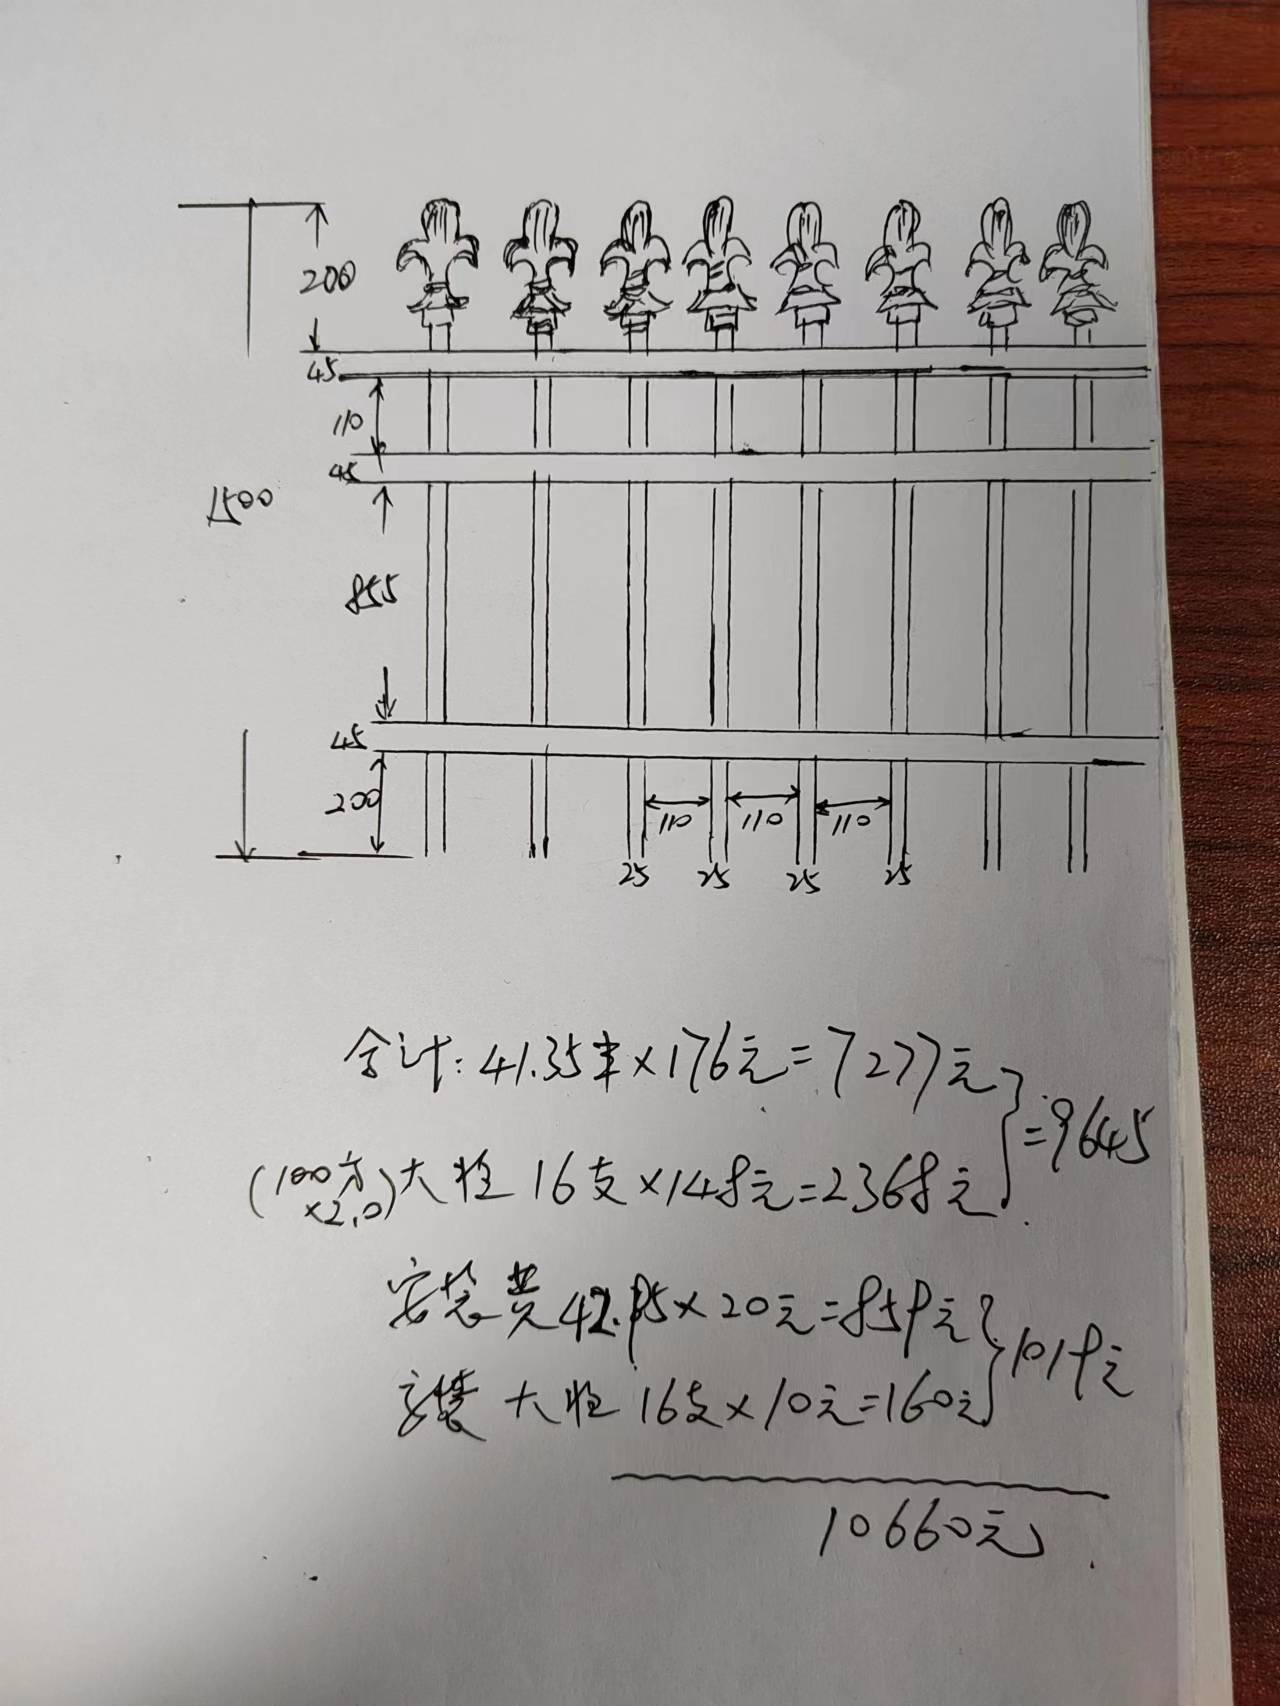 200
45
110
45
1500
855
45
200
110 110 110
25 25 25 25
合计:41.35米×176元=7277元
=9645
(100方×2.0)大柱 16支×148元=2368元
安装费42.95×20元=859元
1019元
安装大柱 16支×10元=160元
10660元